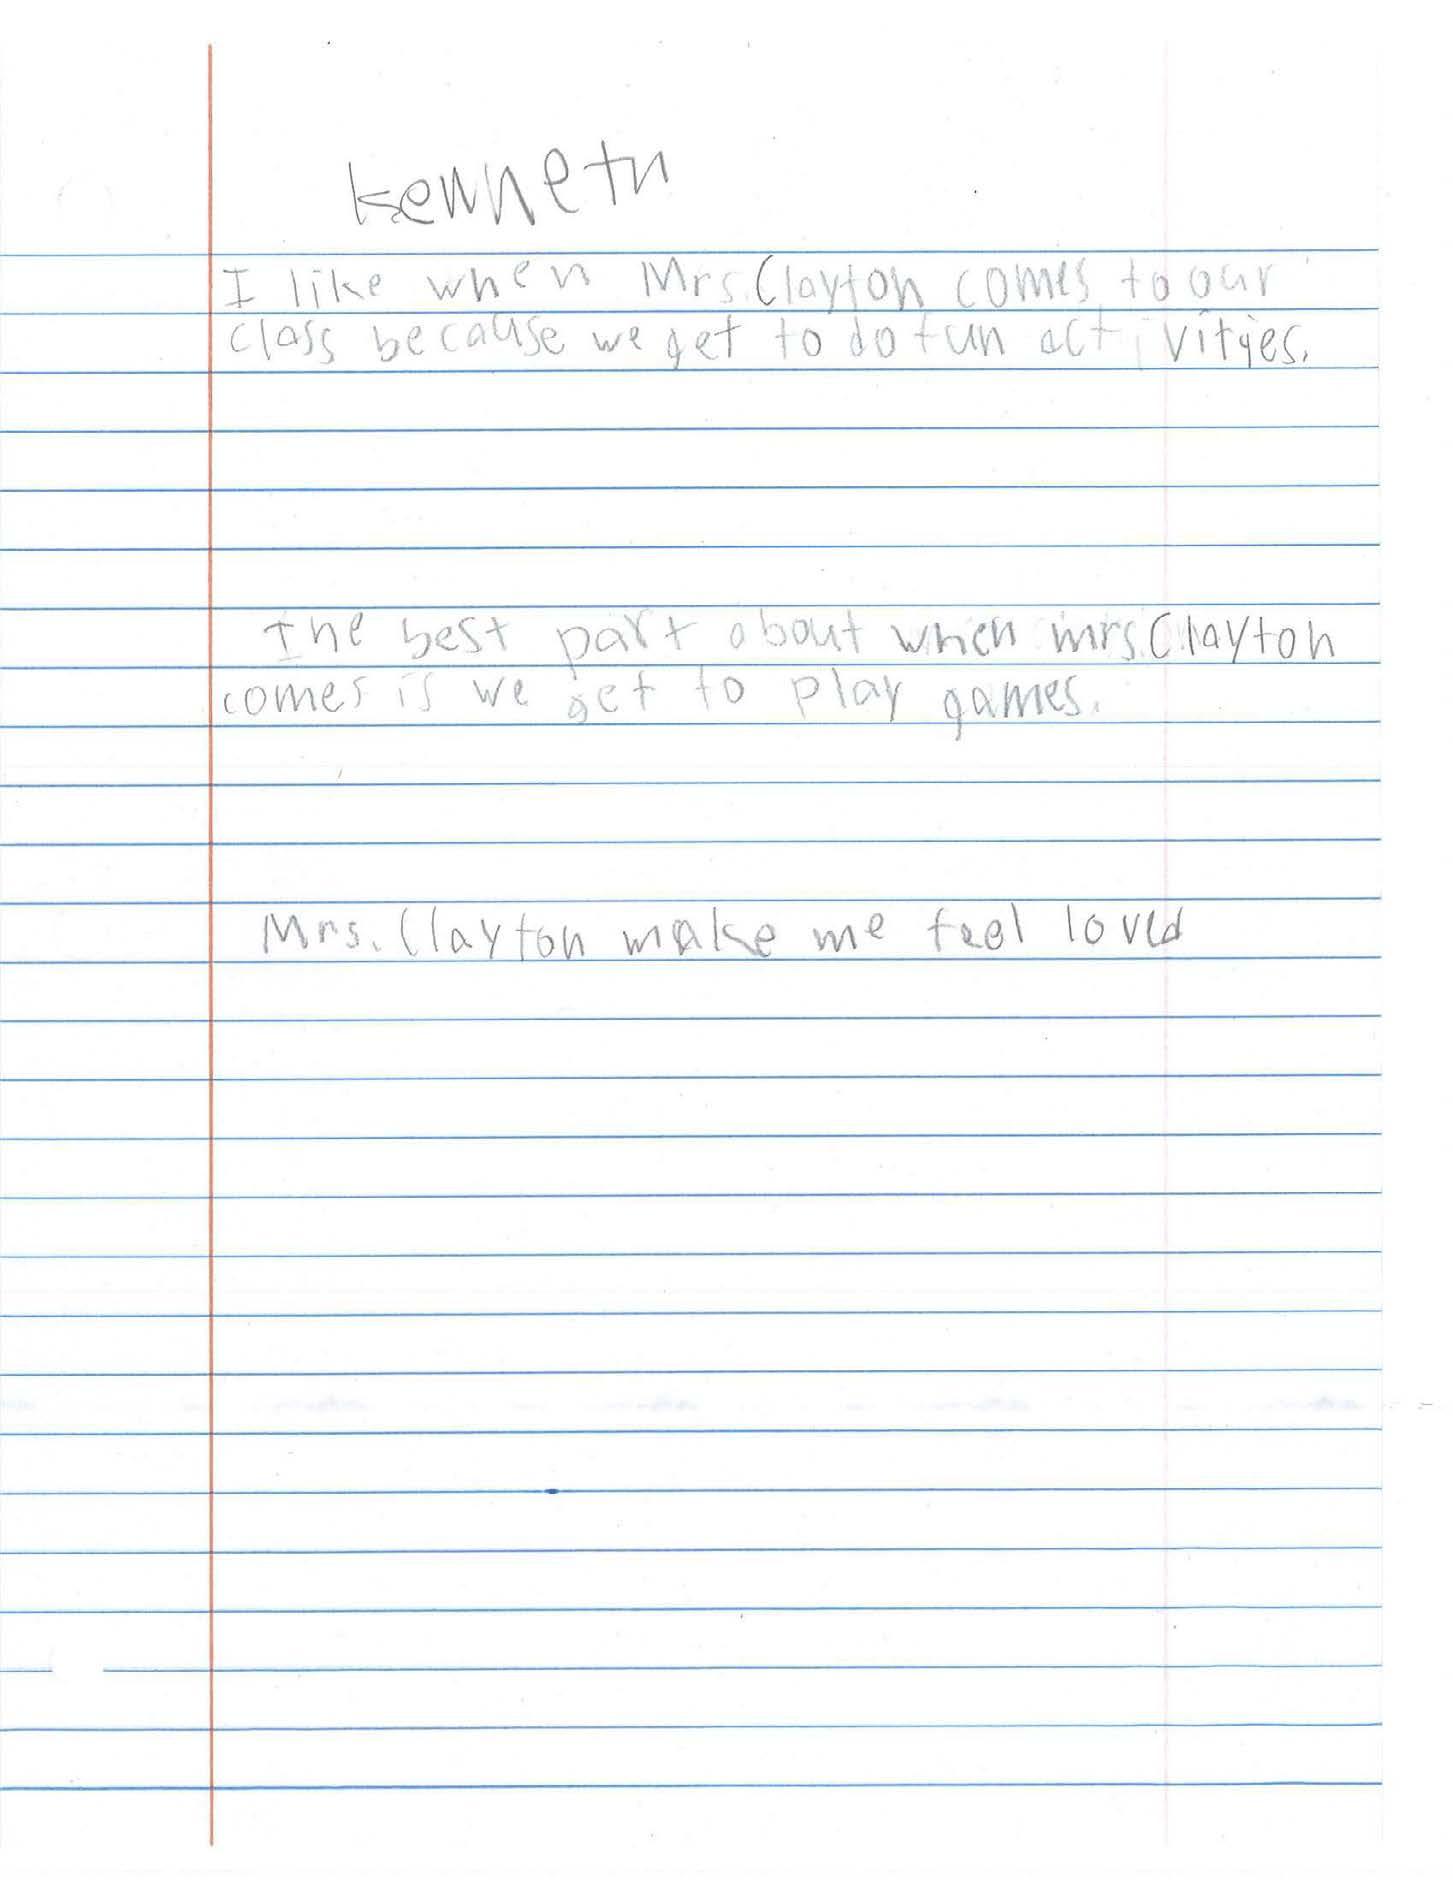 kenneth
I like when Mrs. Clayton comes to our
class because we get to do fun activities.
The best part about when mrs. Clayton
comes is we get to play games.
Mrs. Clayton make me feel loved